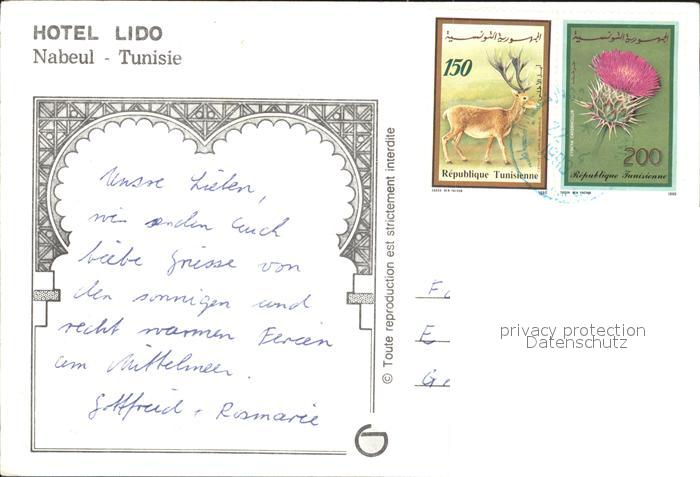 HOTEL LIDO
Nabeul - Tunisie
الجمهورية التونسية
150
République Tunisienne
الجمهورية التونسية
200
République Tunisienne
Unsre Lieben,
wir senden Euch
liebe Grüsse von
den sonnigen und
recht warmen Ferien
am Mittelmeer.
Gottfried + Rosmarie
© Toute reproduction est strictement interdite
F
E
G
privacy protection
Datenschutz